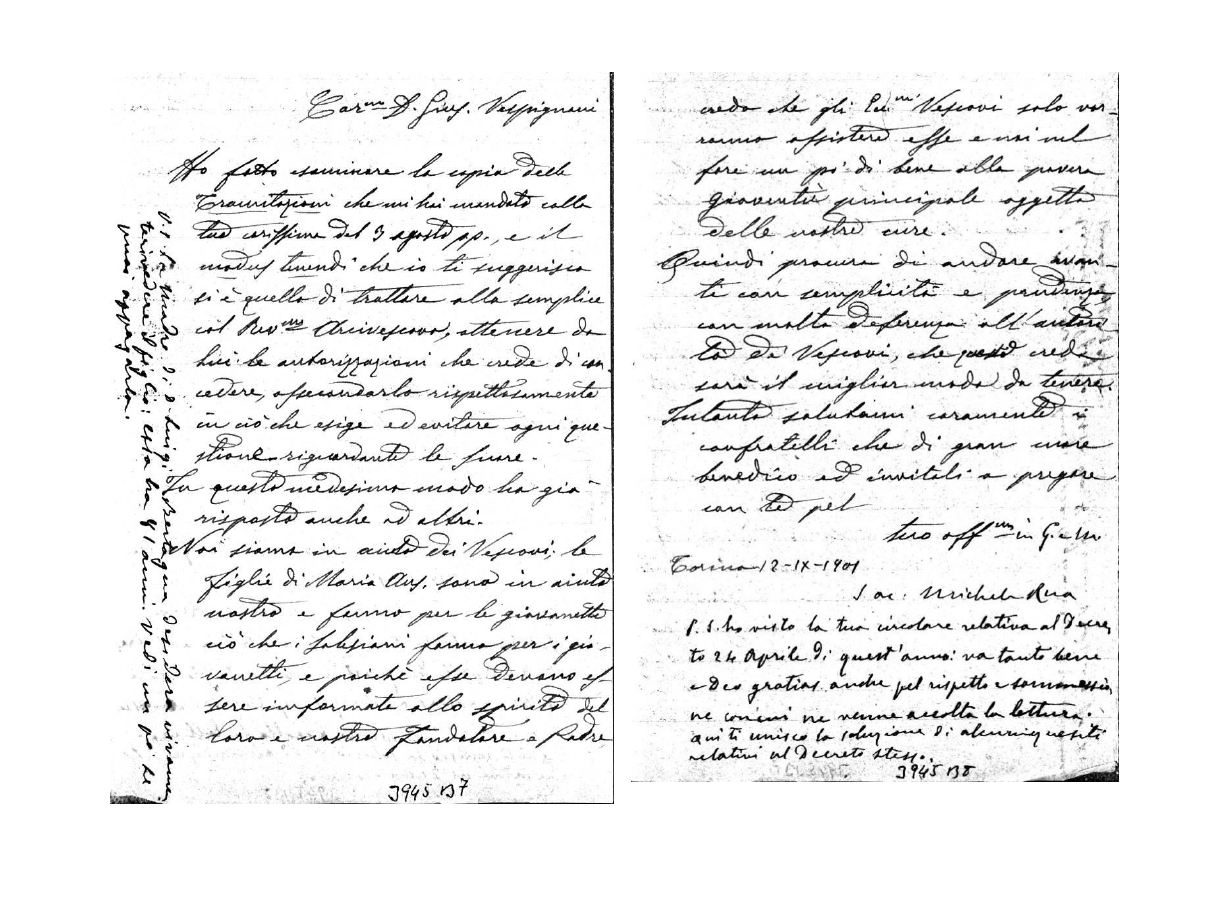 Car.mo D. Gius. Vespignani
Ho fatto esaminare la copia delle
Tramitazioni che mi hai mandato colla
tua carissima del 3 agosto pp., e il
modus tenendi che io ti suggerisco
si è quello di trattare alla semplice
col Rev.mo Arcivescovo, ottenere da
lui le autorizzazioni che crede di con-
cedere, assecondarlo rispettosamente
in ciò che esige ed evitare ogni que-
stione riguardante le suore.
In questo medesimo modo ho già
risposto anche ad altri.
Noi siamo in aiuto dei Vescovi; le
figlie di Maria Aus. sono in aiuto
nostro e fanno per le giovanette
ciò che i salesiani fanno per i gio-
vanetti, e poichè esse devono es
sere informate allo spirito del
loro e nostro Fondatore e Padre
P.S. La madre di D. Luigi Botta desidera vivame.
rivedere il figlio: essa ha 91 anni. Vedi un po' se
puoi appagarla.
J945 B7
credo che gli Ecc.mi Vescovi solo vor-
ranno assistere esse e noi nel
fare un po' di bene alla povera
gioventù principale oggetto
delle nostre cure.
Quindi procura di andare avan-
ti con semplicità e prudenza,
con molta deferenza all'autori
tà dei Vescovi, che questo credo
sarà il miglior modo da tenere.
Intanto salutami caramente i
confratelli che di gran cuore
benedico ed invitali a pregare
con te pel
tuo aff.mo in G. e M.
Torino 12-IX-1901
Sac. Michele Rua
P.S. ho visto la tua circolare relativa al Decre
to 24 Aprile di quest'anno: va tanto bene
e Deo gratias anche pel rispetto e sommessio
ne con cui ne venne accolta la lettura.
Qui ti unisco la soluzione di alcuni quesiti
relativi al Decreto stesso.
J945 B8